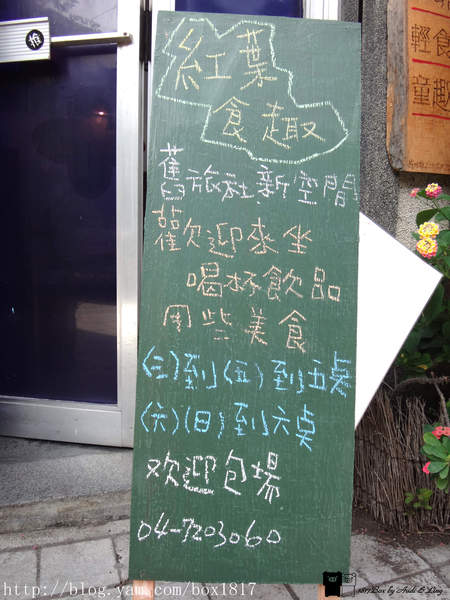 紅葉
食趣
舊旅社新空間
歡迎來坐
喝杯飲品
用些美食
(三)到(五)到五桌
(六)(日)到六桌
欢迎包場
04-7203060
輕食
童趣
http://blog.yam.com/box1817
1817Box by Andi & Ling